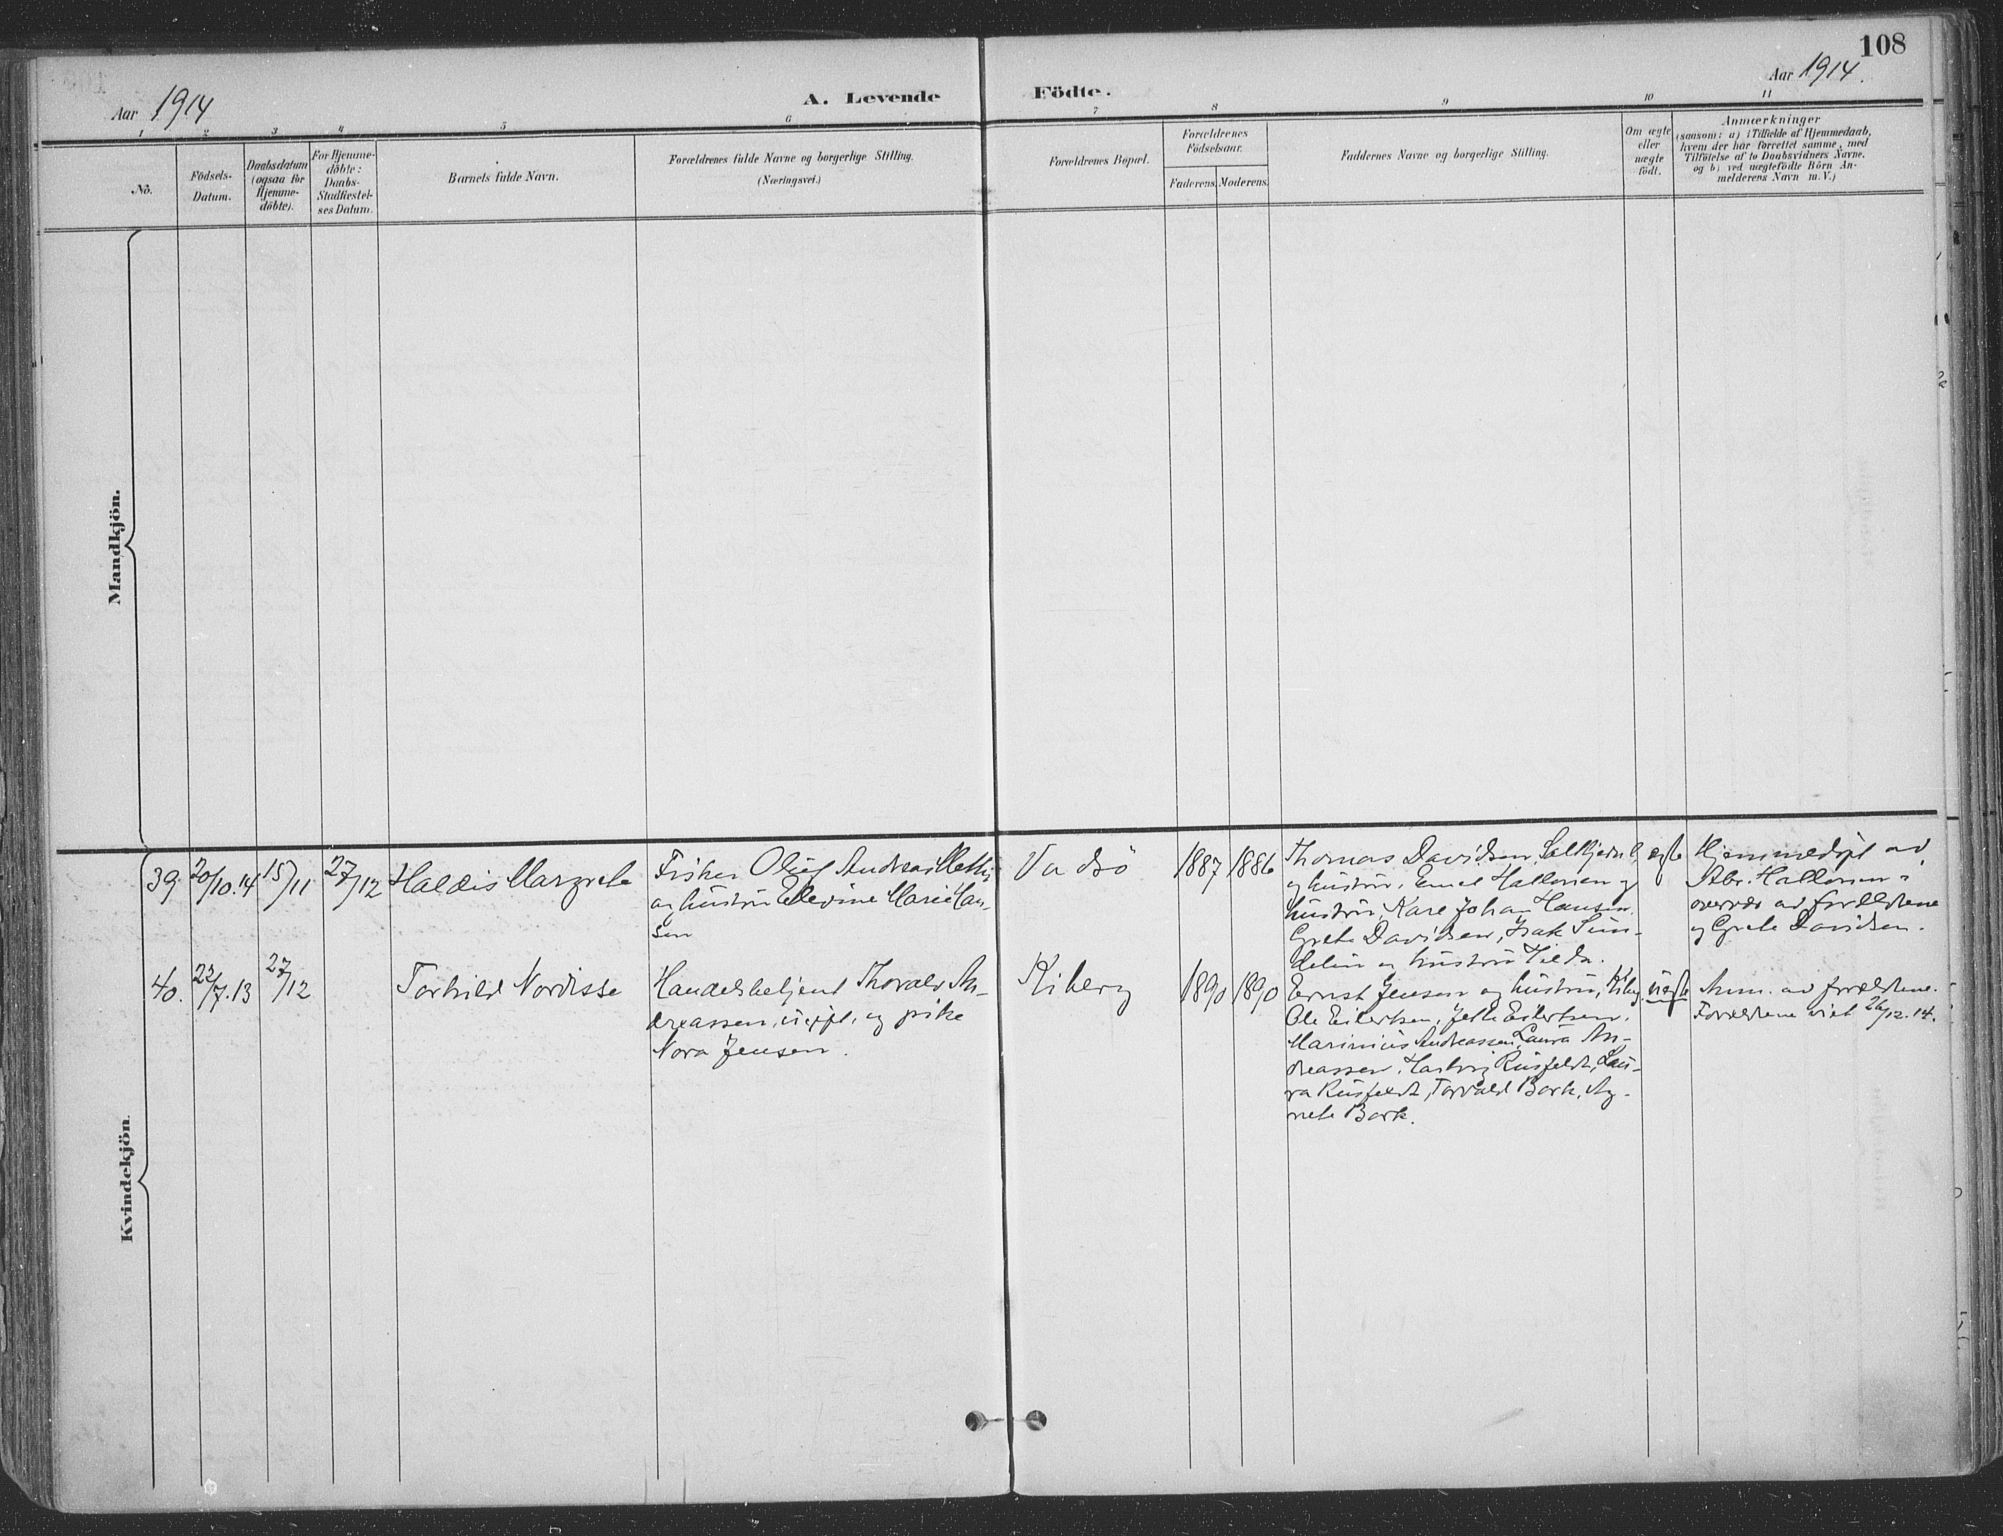 108
Aar 1914
A. Levende Födte.
Aar 1914.
1 2 3 4 5 6 7 8 9 10 11
Nô.
Födsels-
Datum.
Daabsdatum
(ogsaa for
Hjemme-
döbte).
For Hjemme-
döbte:
Daabs-
Stadfæstel-
ses Datum.
Barnets fulde Navn.
Forældrenes fulde Navne og borgerlige Stilling.
(Næringsvei.)
Forældrenes Bopæl.
Forældrenes
Födselsaar.
Faderens. Moderens.
Faddernes Navne og borgerlige Stilling.
Om ægte
eller
uægte
födt.
Anmærkninger
(saasom: a) i Tilfælde af Hjemmedaab,
hvem der har forrettet samme, med
Tilföielse af to Daabsvidners Navne,
og b) ved uægtefödte Börn An-
melderens Navn m. V.)
Mandkjön.
Kvindekjön.
39. 20/10.14 15/11 27/12
Haldis Margrete
Fisker Oluf Andreas
og hustru Elevine Marie Han-
sen
Vadsö
1887 1886
Thomas Davidsen,
og hustru, Emil Hallonen og
hustru, Kare Johan Hansen.
Grete Davidsen, Isak Sun-
delin og hustru Hilda.
ægte
Hjemmedöpt av
Abr. Hallonen i
overvær av forældrene
og Grete Davidsen.
40. 22/7.13 27/12
Torhild Nordisse
Handelsbetjent Thorald An-
dreassen, og pike
Nora Jensen.
Kiberg
1890 1890
Ernst Jensen og hustru, Kibg.
Ole Eilertsen, Eilertsen.
Marinius Andreassen, Laura An-
dreassen. Hartvig Rusfeldt, Lau-
ra Rusfeldt, Torvald Bork, Ag-
nete Bork.
uægte
Anm. av forældrene.
Forældrene viet 26/12.14.